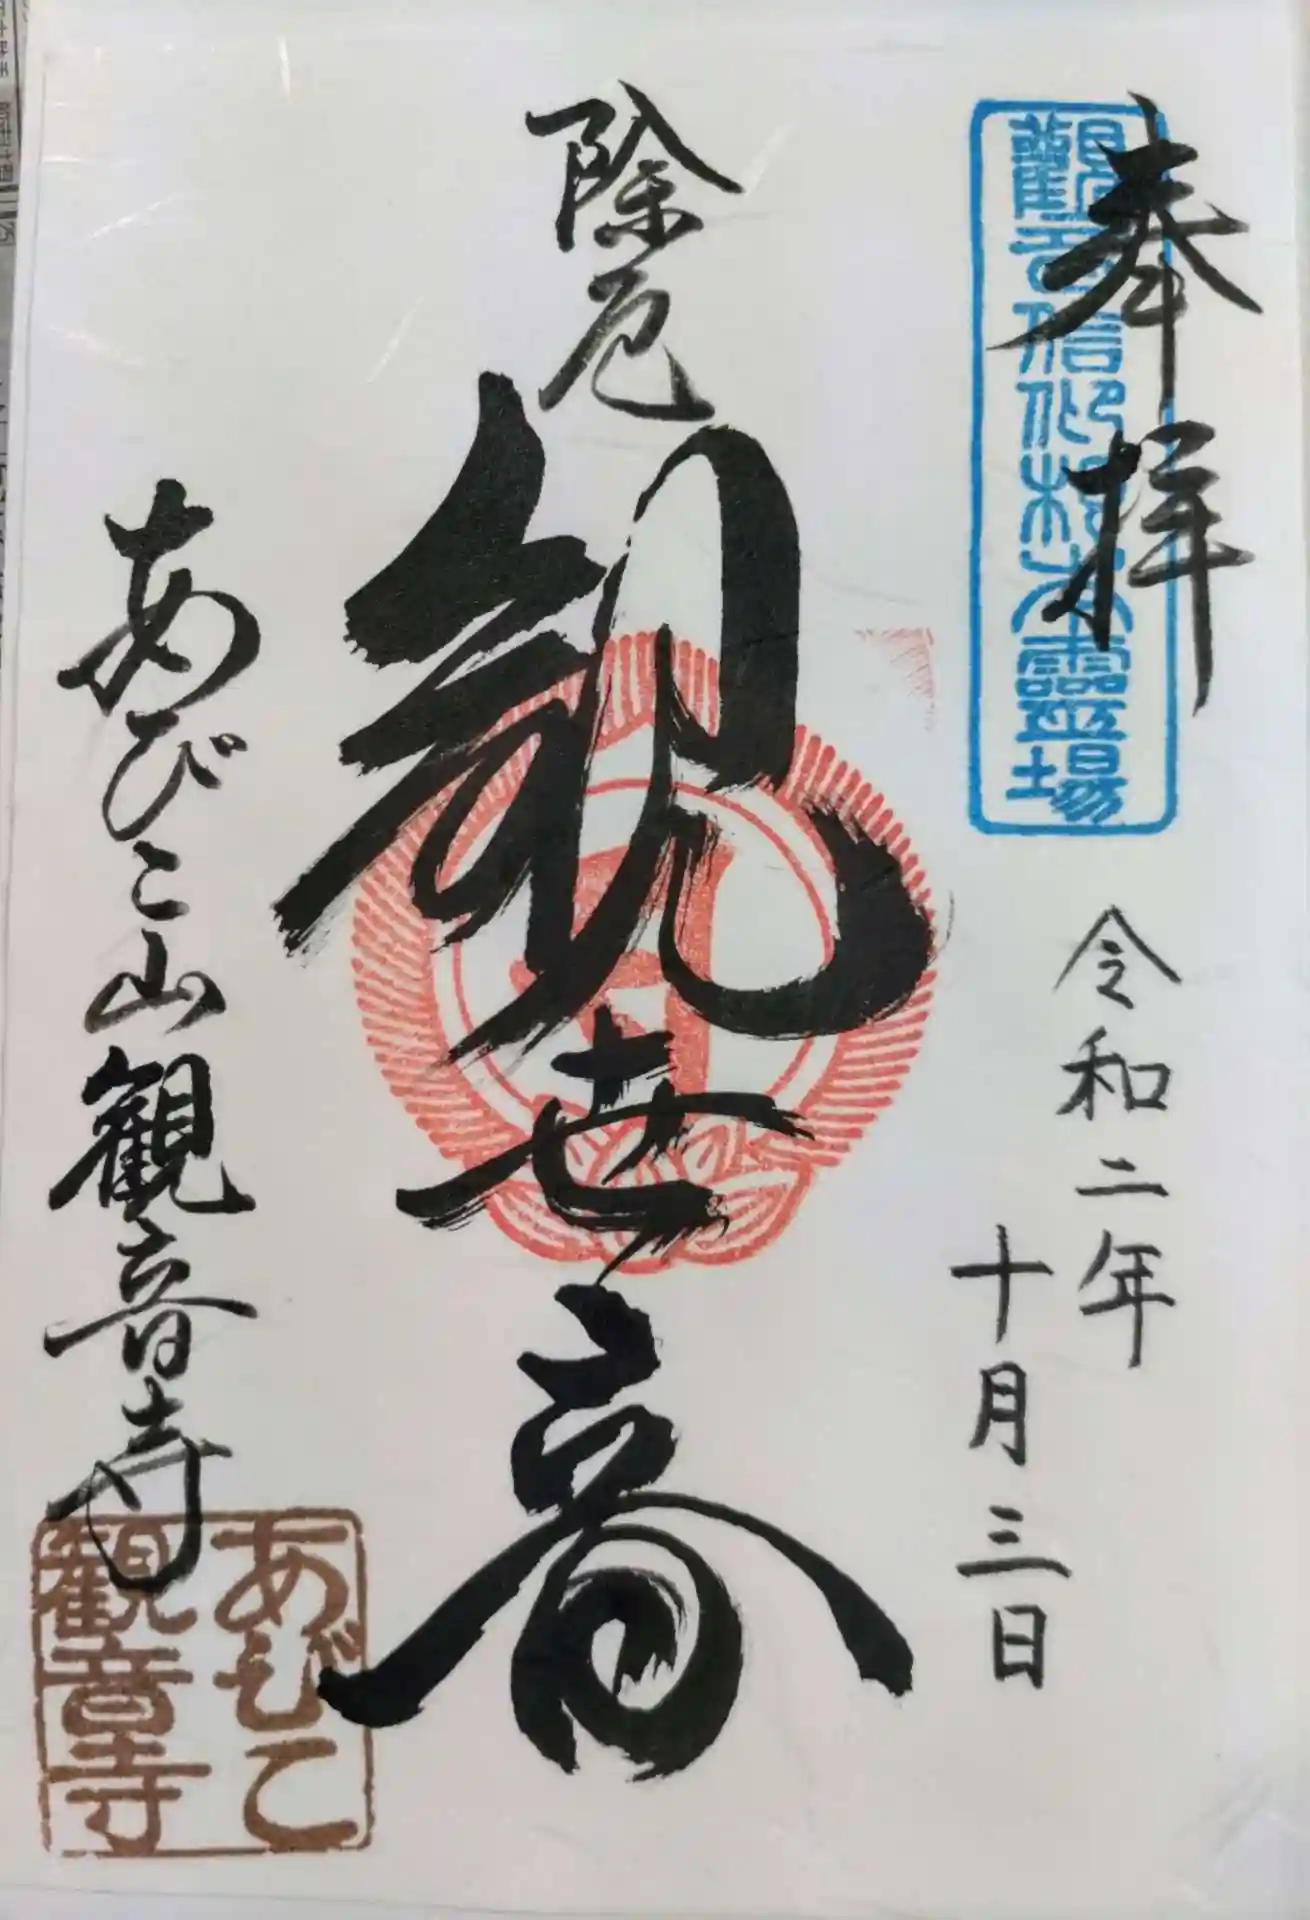 奉拝
觀音信仰根本靈場
令和二年
十月三日
除厄
観世音
あびこ山観音寺
あびこ
観音寺